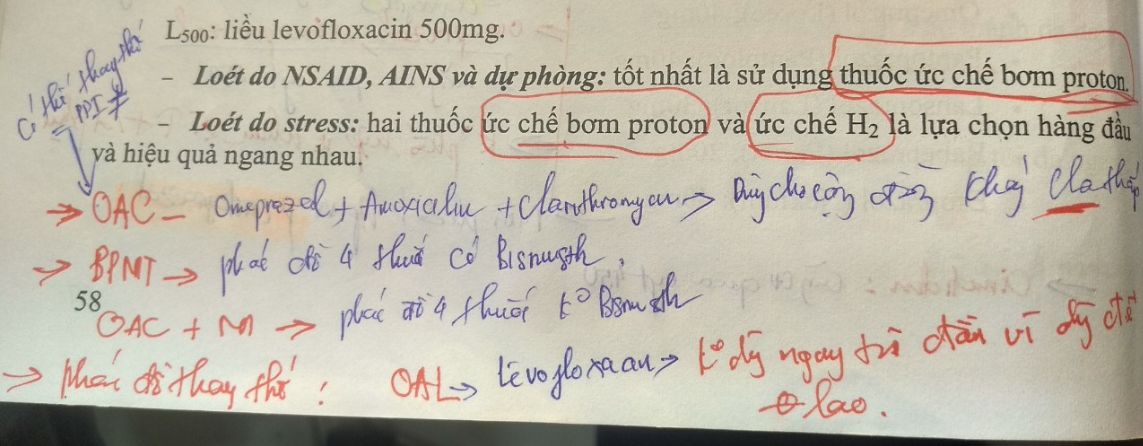 L500: liều levofloxacin 500mg.
- Loét do NSAID, AINS và dự phòng: tốt nhất là sử dụng thuốc ức chế bơm proton.
- Loét do stress: hai thuốc ức chế bơm proton và ức chế H2 là lựa chọn hàng đầu
và hiệu quả ngang nhau.
Có thể thay thế
PPI ≠
→ OAC - Omeprazol + Amoxicilin + Clarithromycin → Dùng cho cộng đồng kháng Cla thấp
→ BPMT → phác đồ 4 thuốc có Bismusth.
58
OAC + M → phác đồ 4 thuốc ko Bismusth
→ phác đồ thay thế : OAL → Levofloxacin → ko dùng ngay từ đầu vì dùng để
lao.